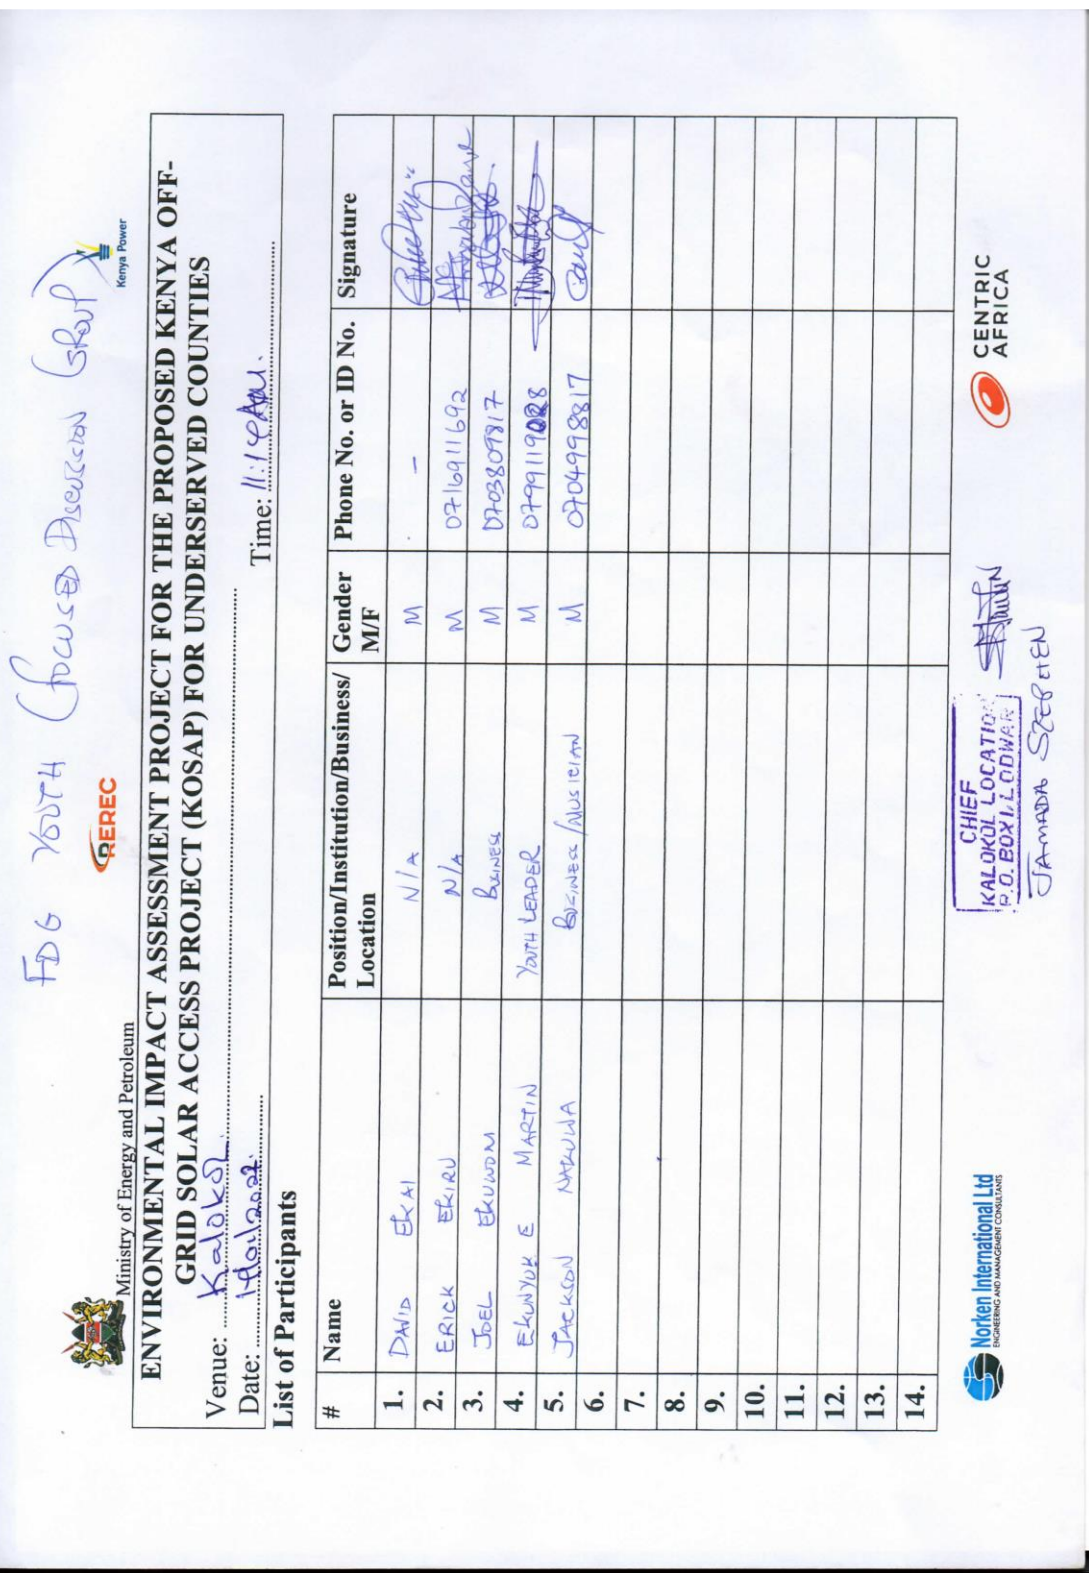 FDG YOUTH (FOCUSED DISCUSSION GROUP)
Ministry of Energy and Petroleum
REREC
Kenya Power
ENVIRONMENTAL IMPACT ASSESSMENT PROJECT FOR THE PROPOSED KENYA OFF-
GRID SOLAR ACCESS PROJECT (KOSAP) FOR UNDERSERVED COUNTIES
Venue: Kalokol
Date: Time: 11:14AM.
List of Participants
# Name Position/Institution/Business/ Location Gender M/F Phone No. or ID No. Signature
1. DAVID EKAI N/A M -
2. ERICK EKIRU N/A M 0716911692
3. JOEL EKUWOM BUSINESS M 0703809817
4. EKUNYUK E MARTIN YOUTH LEADER M
5. JACKSON NAKUWA BUSINESS/MUSICIAN M 0704998817
6.
7.
8.
9.
10.
11.
12.
13.
14.
Norken International Ltd
ENGINEERING AND MANAGEMENT CONSULTANTS
CHIEF
KALOKOL LOCATION
P.O. BOX 1, LODWAR
JAMADA
CENTRIC
AFRICA